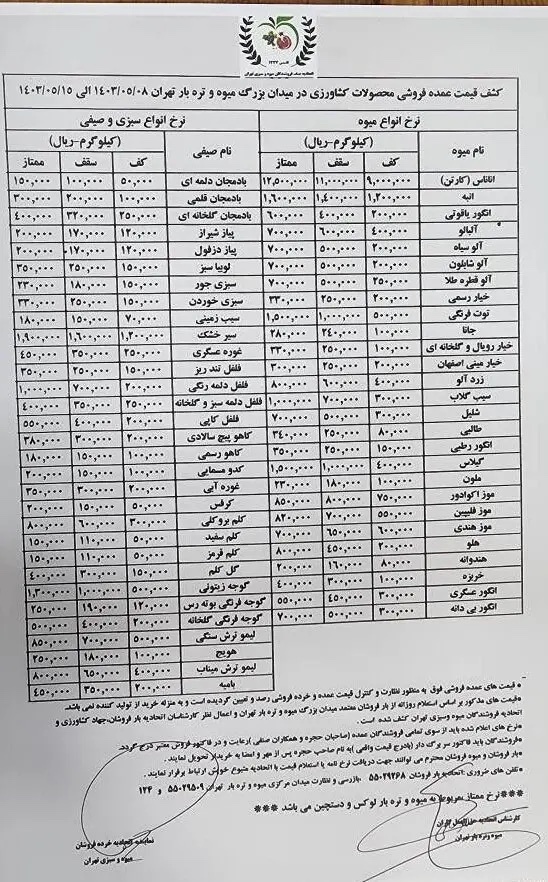 اتحادیه صنف فروشندگان میوه و سبزی تهران
کشف قیمت عمده فروشی محصولات کشاورزی در میدان بزرگ میوه و تره بار تهران ۱۴۰۳/۰۵/۰۸ الی ۱۴۰۳/۰۵/۱۵
نرخ انواع میوه نرخ انواع سبزی و صیفی
نام میوه (کیلوگرم-ریال) نام صیفی (کیلوگرم-ریال)
کف سقف ممتاز کف سقف ممتاز
آناناس (کارتن) ۹,۰۰۰,۰۰۰ ۱۱,۰۰۰,۰۰۰ ۱۲,۵۰۰,۰۰۰ بادمجان دلمه ای ۵۰,۰۰۰ ۱۰۰,۰۰۰ ۱۵۰,۰۰۰
انبه ۱,۲۰۰,۰۰۰ ۱,۴۰۰,۰۰۰ ۱,۶۰۰,۰۰۰ بادمجان قلمی ۱۰۰,۰۰۰ ۲۰۰,۰۰۰ ۳۰۰,۰۰۰
انگور یاقوتی ۲۰۰,۰۰۰ ۴۰۰,۰۰۰ ۶۰۰,۰۰۰ بادمجان گلخانه ای ۲۵۰,۰۰۰ ۳۲۰,۰۰۰ ۴۰۰,۰۰۰
آلبالو ۴۰۰,۰۰۰ ۶۰۰,۰۰۰ ۷۰۰,۰۰۰ پیاز شیراز ۱۲۰,۰۰۰ ۱۷۰,۰۰۰ ۲۰۰,۰۰۰
آلو سیاه ۲۰۰,۰۰۰ ۵۰۰,۰۰۰ ۷۰۰,۰۰۰ پیاز دزفول ۱۲۰,۰۰۰ ۱۷۰,۰۰۰ ۲۰۰,۰۰۰
آلو شابلون ۲۰۰,۰۰۰ ۵۰۰,۰۰۰ ۷۰۰,۰۰۰ لوبیا سبز ۱۵۰,۰۰۰ ۲۵۰,۰۰۰ ۳۵۰,۰۰۰
آلو قطره طلا ۲۵۰,۰۰۰ ۵۰۰,۰۰۰ ۷۰۰,۰۰۰ سبزی جور ۱۵۰,۰۰۰ ۱۸۰,۰۰۰ ۲۳۰,۰۰۰
خیار رسمی ۲۰۰,۰۰۰ ۲۵۰,۰۰۰ ۳۳۰,۰۰۰ سبزی خوردن ۱۵۰,۰۰۰ ۲۵۰,۰۰۰ ۳۳۰,۰۰۰
توت فرنگی ۵۰۰,۰۰۰ ۱,۰۰۰,۰۰۰ ۱,۵۰۰,۰۰۰ سیب زمینی ۷۰,۰۰۰ ۱۵۰,۰۰۰ ۱۸۰,۰۰۰
جانا ۱۰۰,۰۰۰ ۲۴۰,۰۰۰ ۲۸۰,۰۰۰ سیر خشک ۱,۲۰۰,۰۰۰ ۱,۶۰۰,۰۰۰ ۱,۹۰۰,۰۰۰
خیار رویال و گلخانه ای ۱۰۰,۰۰۰ ۲۵۰,۰۰۰ ۳۳۰,۰۰۰ غوره عسگری ۲۵۰,۰۰۰ ۳۵۰,۰۰۰ ۴۵۰,۰۰۰
خیار مینی اصفهان ۲۰۰,۰۰۰ ۲۵۰,۰۰۰ ۳۰۰,۰۰۰ فلفل تند ریز ۱۵۰,۰۰۰ ۲۵۰,۰۰۰ ۳۵۰,۰۰۰
زرد آلو ۴۰۰,۰۰۰ ۶۰۰,۰۰۰ ۸۰۰,۰۰۰ فلفل دلمه رنگی ۲۰۰,۰۰۰ ۷۰۰,۰۰۰ ۱,۰۰۰,۰۰۰
سیب گلاب ۳۰۰,۰۰۰ ۷۰۰,۰۰۰ ۱,۰۰۰,۰۰۰ فلفل دلمه سبز و گلخانه ۲۵۰,۰۰۰ ۳۵۰,۰۰۰ ۴۰۰,۰۰۰
شلیل ۳۰۰,۰۰۰ ۵۰۰,۰۰۰ ۷۰۰,۰۰۰ فلفل کاپی ۲۰۰,۰۰۰ ۴۰۰,۰۰۰ ۵۵۰,۰۰۰
طالبی ۸۰,۰۰۰ ۲۵۰,۰۰۰ ۳۴۰,۰۰۰ کاهو پیچ سالادی ۲۰۰,۰۰۰ ۳۰۰,۰۰۰ ۳۸۰,۰۰۰
انگور رطبی ۱۵۰,۰۰۰ ۲۵۰,۰۰۰ ۳۵۰,۰۰۰ کاهو رسمی ۱۰۰,۰۰۰ ۱۵۰,۰۰۰ ۱۸۰,۰۰۰
گیلاس ۴۰۰,۰۰۰ ۱,۰۰۰,۰۰۰ ۱,۵۰۰,۰۰۰ کدو مسمایی ۱۰۰,۰۰۰ ۱۵۰,۰۰۰ ۲۰۰,۰۰۰
ملون ۱۰۰,۰۰۰ ۱۸۰,۰۰۰ ۲۳۰,۰۰۰ غوره آبی ۲۰۰,۰۰۰ ۳۰۰,۰۰۰ ۳۵۰,۰۰۰
موز اکوادور ۷۵۰,۰۰۰ ۸۰۰,۰۰۰ ۸۵۰,۰۰۰ کرفس ۵۰,۰۰۰ ۱۵۰,۰۰۰ ۲۰۰,۰۰۰
موز فلیپین ۵۵۰,۰۰۰ ۷۰۰,۰۰۰ ۸۲۰,۰۰۰ کلم بروکلی ۳۰۰,۰۰۰ ۶۰۰,۰۰۰ ۸۰۰,۰۰۰
موز هندی ۶۰۰,۰۰۰ ۶۵۰,۰۰۰ ۷۰۰,۰۰۰ کلم سفید ۵۰,۰۰۰ ۱۱۰,۰۰۰ ۱۵۰,۰۰۰
هلو ۲۰۰,۰۰۰ ۴۵۰,۰۰۰ ۸۰۰,۰۰۰ کلم قرمز ۵۰,۰۰۰ ۱۱۰,۰۰۰ ۱۵۰,۰۰۰
هندوانه ۸۰,۰۰۰ ۱۶۰,۰۰۰ ۲۰۰,۰۰۰ گل کلم ۱۵۰,۰۰۰ ۳۰۰,۰۰۰ ۴۰۰,۰۰۰
خربزه ۱۰۰,۰۰۰ ۳۰۰,۰۰۰ ۴۰۰,۰۰۰ گوجه زیتونی ۵۰۰,۰۰۰ ۱,۰۰۰,۰۰۰ ۱,۳۰۰,۰۰۰
انگور عسکری ۳۰۰,۰۰۰ ۴۵۰,۰۰۰ ۵۵۰,۰۰۰ گوجه فرنگی بوته رس ۱۲۰,۰۰۰ ۱۹۰,۰۰۰ ۲۵۰,۰۰۰
انگور بی دانه ۳۰۰,۰۰۰ ۵۰۰,۰۰۰ ۷۰۰,۰۰۰ گوجه فرنگی گلخانه ۲۰۰,۰۰۰ ۴۰۰,۰۰۰ ۵۰۰,۰۰۰
لیمو ترش سنگی ۵۰۰,۰۰۰ ۷۰۰,۰۰۰ ۸۵۰,۰۰۰
هویج ۱۰۰,۰۰۰ ۱۸۰,۰۰۰ ۲۵۰,۰۰۰
لیمو ترش میناب ۴۰۰,۰۰۰ ۶۵۰,۰۰۰ ۸۰۰,۰۰۰
بامیه ۲۰۰,۰۰۰ ۳۵۰,۰۰۰ ۴۵۰,۰۰۰
* قیمت های عمده فروشی فوق به منظور نظارت و کنترل قیمت عمده و خرده فروشی رصد و تعیین گردیده است و به منزله خرید از تولید کننده نمی باشد.
* قیمت های مذکور بر اساس استعلام روزانه از بار فروشان معتمد میدان بزرگ میوه و تره بار تهران و اعمال نظر کارشناسان اتحادیه بار فروشان، جهاد کشاورزی و
اتحادیه فروشندگان میوه وسبزی تهران کشف شده است.
* نرخ های اعلام شده باید از سوی تمامی فروشندگان عمده (صاحبان حجره و همکاران صنفی) رعایت و در فاکتور فروش معتبر درج گردد.
* فروشندگان باید فاکتور سربرگ دار (بادرج قیمت واقعی) به نام صاحب حجره پس از مهر و امضا به خریدار تحویل نمایند.
* بار فروشان و میوه فروشان محترم می توانند جهت دریافت نرخ نامه یا استعلام قیمت با اتحادیه متبوع خویش ارتباط برقرار نمایند.
* تلفن های ضروری: اتحادیه بار فروشان ۵۵۰۲۹۲۶۸ بازرسی و نظارت میدان مرکزی میوه و تره بار تهران ۵۵۰۲۹۵۰۹ و ۱۲۴
***نرخ ممتاز مربوط به میوه و تره بار لوکس و دستچین می باشد ***
کارشناس اتحادیه
میوه و تره بار تهران
نماینده اتحادیه خرده فروشان
میوه و سبزی تهران